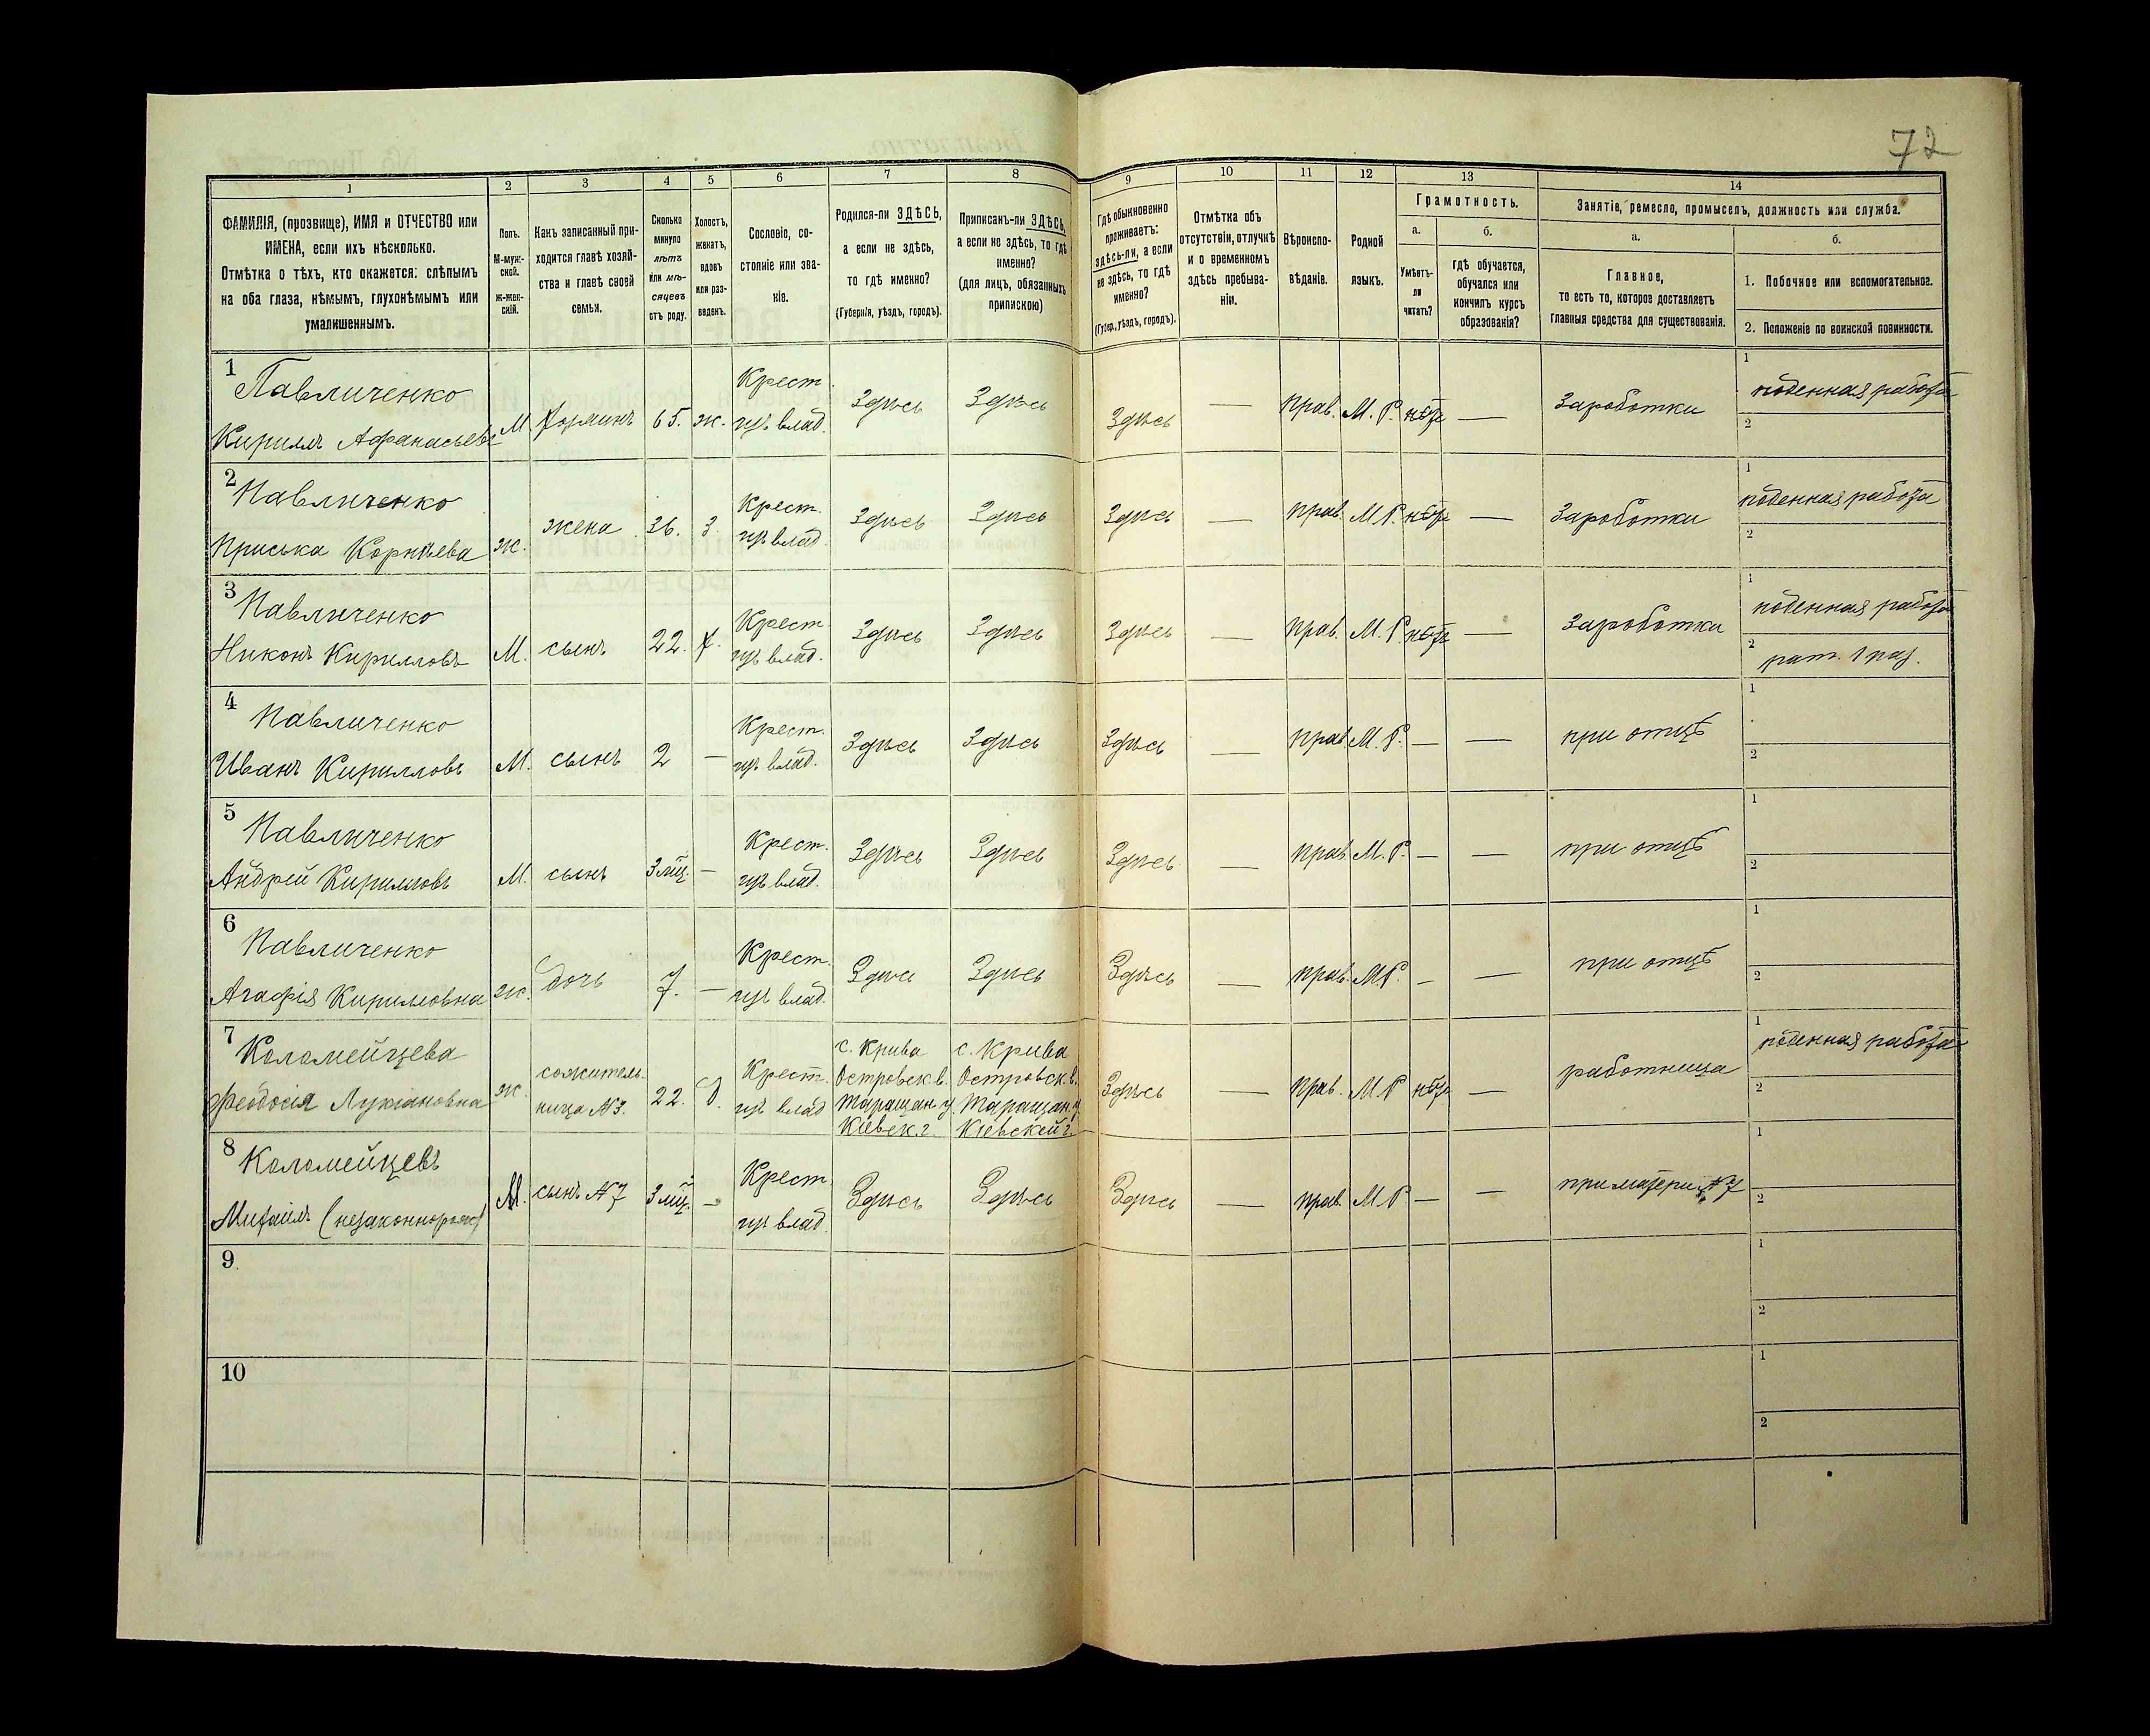 72
1 2 3 4 5 6 7 8 9 10 11 12 13 14
ФАМИЛІЯ, (прозвище), ИМЯ и ОТЧЕСТВО или
ИМЕНА, если ихъ нѣсколько.
Отмѣтка о тѣхъ, кто окажется: слѣпымъ
на оба глаза, нѣмымъ, глухонѣмымъ или
умалишеннымъ.
Полъ.
М-муж-
ской.
Ж-жен-
скій.
Какъ записанный при-
ходится главѣ хозяй-
ства и главѣ своей
семьи.
Сколько
минуло
лѣтъ
или мѣ-
сяцевъ
отъ роду.
Холостъ,
женатъ,
вдовъ
или раз-
веденъ.
Сословіе, со-
стояніе или зва-
ніе.
Родился-ли ЗДѢСЬ,
а если не здѣсь,
то гдѣ именно?
(Губернія, уѣздъ, городъ).
Приписанъ-ли ЗДѢСЬ,
а если не здѣсь, то гдѣ
именно?
(для лицъ, обязанныхъ
припискою)
Гдѣ обыкновенно
проживаетъ:
здѣсь-ли, а если
не здѣсь, то гдѣ
именно?
(Губер., уѣздъ, городъ).
Отмѣтка объ
отсутствіи, отлучкѣ
и о временномъ
здѣсь пребыва-
ніи.
Вѣроиспо-
вѣданіе.
Родной
языкъ.
Грамотность.
а.
Умѣетъ-
ли
читать?
б.
гдѣ обучается,
обучался или
кончилъ курсъ
образованія?
Занятіе, ремесло, промыселъ, должность или служба.
а.
Главное,
то есть то, которое доставляетъ
главныя средства для существованія.
б.
1. Побочное или вспомогательное.
2. Положеніе по воинской повинности.
1 Павличенко
Кириллъ Афанасьевъ М. хозяинъ 65. ж. Крест. изъ влад. Здѣсь Здѣсь Здѣсь — прав. М. Р. нѣтъ — Заработки 1 поденная работа 2
2 Павличенко
Приська Корніева ж. жена 36. З. Крест. изъ влад. Здѣсь Здѣсь Здѣсь — прав. М. Р. нѣтъ — Заработки 1 поденная работа 2
3 Павличенко
Никонъ Кирилловъ М. сынъ 22. х. Крест. изъ влад. Здѣсь Здѣсь Здѣсь — прав. М. Р. нѣтъ — Заработки 1 поденная работа 2 рат. 1 раз.
4 Павличенко
Иванъ Кирилловъ М. сынъ 2 — Крест. изъ влад. Здѣсь Здѣсь Здѣсь — прав. М. Р. — — при отцѣ 1 2
5 Павличенко
Андрей Кирилловъ М. сынъ 3 мц. — Крест. изъ влад. Здѣсь Здѣсь Здѣсь — прав. М. Р. — — при отцѣ 1 2
6 Павличенко
Агафія Кирилловна ж. дочь 7. — Крест. изъ влад. Здѣсь Здѣсь Здѣсь — прав. М. Р. — — при отцѣ 1 2
7 Коломейцева
Феодосія Лукіановна ж. сожитель-
ница №3. 22. д. Крест. изъ влад.
с. Крива
Островск. в.
Таращан. у.
Кіевск. г.
с. Крива
Островск. в.
Таращан. у.
Кіевской г.
Здѣсь — прав. М. Р. нѣтъ — работница 1 поденная работа 2
8 Коломейцевъ
Михаилъ (незаконнорож) М. сынъ №7 3 мц. — Крест. изъ влад. Здѣсь Здѣсь Здѣсь — прав. М. Р. — — при матери №7 1 2
9 1 2
10 1 2